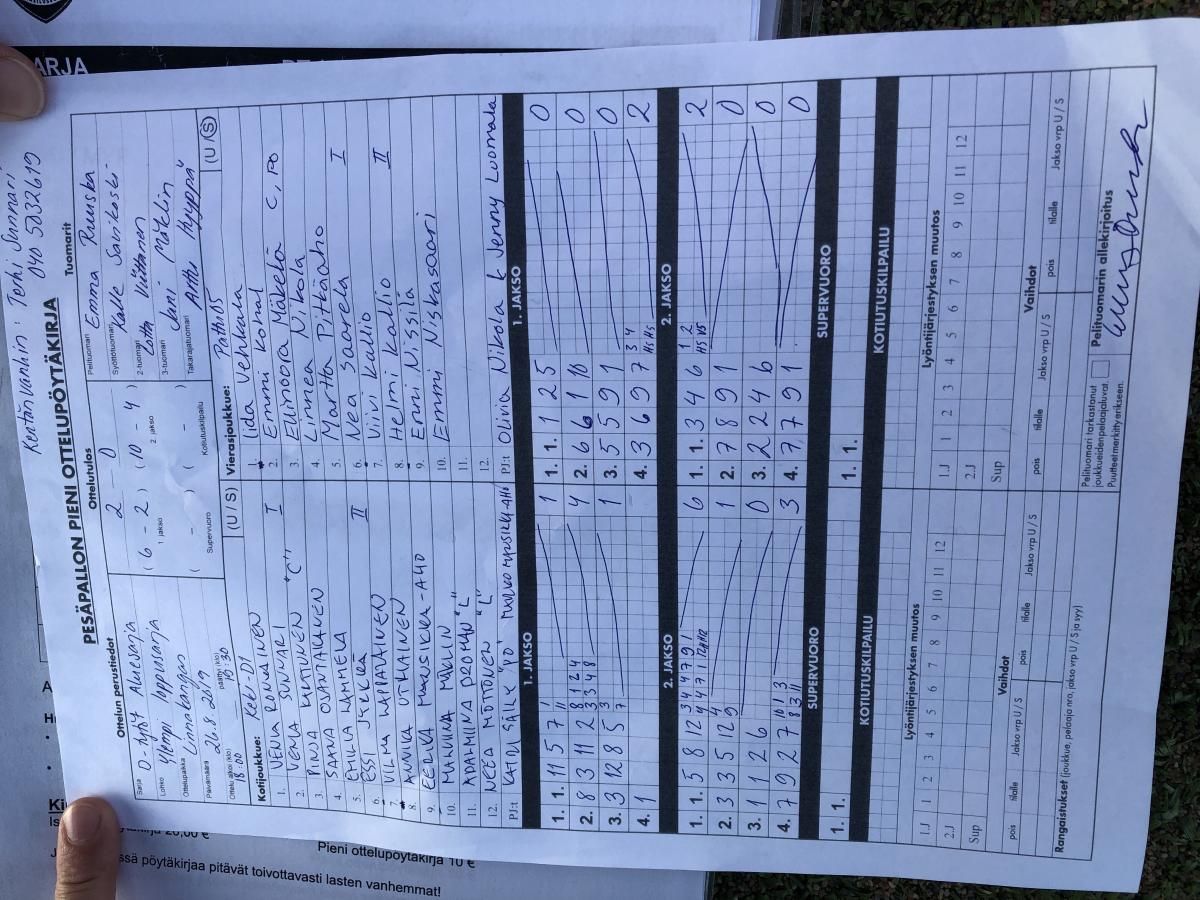 Kentän vanhin: Terhi Sunnari,
040 5032619
PESÄPALLON PIENI OTTELUPÖYTÄKIRJA
Ottelun perustiedot
Sarja D-tytöt Aluesarja
Lohko Ylempi loppusarja
Ottelupaikka Linnakangas
Päivämäärä 26.8.2019
Ottelu alkoi (klo) 18:00 päättyi (klo) 19:30
Ottelutulos
2 - 0
(6 - 2) (10 - 4)
1. jakso 2. jakso
( - ) ( - )
Supervuoro Kotiutuskilpailu
Tuomarit
Pelituomari Emma Ruuska
Syöttötuomari Kalle Savikoski
2-tuomari Lotta Viittanen
3-tuomari Jani Mätelin
Takarajatuomari Arttu "Hyyppä"
Kotijoukkue: KeKi-D1 (U / S)
1. VENLA RONKAINEN I
2. VEERA SUNNARI "C"
3. PINJA KAUTUNEN
4. SAANA OJANTAKANEN
5. EMILIA LAMMELA
6. ESSI JYRKKÄ II
7. VILMA KARJALAINEN
8. ANNIKA UTRIAINEN
9. EERIKA MANSIKKA-AHO
10. MALVIINA MÄKLIN
11. ADAMIINA DROMAN "L"
12. NEEA MÖTTÖNEN "L"
PJ:t KATJA SÄILY "PÖ" MARKKO MANSIKKA-AHO
Vierasjoukkue: Patto 05 (U/S)
1. Iida Vehkala
2. Emmi Konal
3. Ellinoora Mäkelä C, PO
4. Linnea Nikola
5. Martta Pitkäaho
6. Nea Saarela I
7. Viivi Kallio II
8. Helmi Kallio
9. Enni Nissilä
10. Emmi Niskasaari
11.
12.
PJ:t Olivia Nikola & Jenny Luomala
1. JAKSO 1. JAKSO
1. 1. 11 5 7 1 11 1 1. 1. 1 2 5 0
2. 8 3 11 2 3 8 3 1 3 2 4 4 8 4 2. 6 6 1 10 0
3. 3 12 8 5 7 3 1 3. 5 5 9 1 0
4. 1 4. 3 6 9 7 3 4 2
2. JAKSO 2. JAKSO
1. 1. 5 8 12 3 4 4 7 9 1 6 1. 1. 3 4 6 1 2 2
2. 3 3 5 12 9 4 1 2. 7 8 9 1 0
3. 1 1 2 6 0 3. 2 2 4 6 0
4. 7 9 2 7 10 1 3 8 3 11 3 4. 7 7 9 1 0
SUPERVUORO SUPERVUORO
1. 1. 1. 1.
KOTIUTUSKILPAILU KOTIUTUSKILPAILU
Lyöntijärjestyksen muutos Lyöntijärjestyksen muutos
1.J 1 2 3 4 5 6 7 8 9 10 11 12 1.J 1 2 3 4 5 6 7 8 9 10 11 12
2.J 2.J
Sup Sup
Vaihdot Vaihdot
pois tilalle Jakso vrp U / S pois tilalle Jakso vrp U / S pois tilalle Jakso vrp U / S pois tilalle Jakso vrp U / S
Rangaistukset (joukkue, pelaaja nro, jakso vrp U / S ja syy)
Pelituomari tarkastanut
joukkueidenpelaajaluvat.
Puutteet merkitty erikseen.
Pelituomarin allekirjoitus
Pieni ottelupöytäkirja 10 €
ssä pöytäkirjaa pitävät toivottavasti lasten vanhemmat!